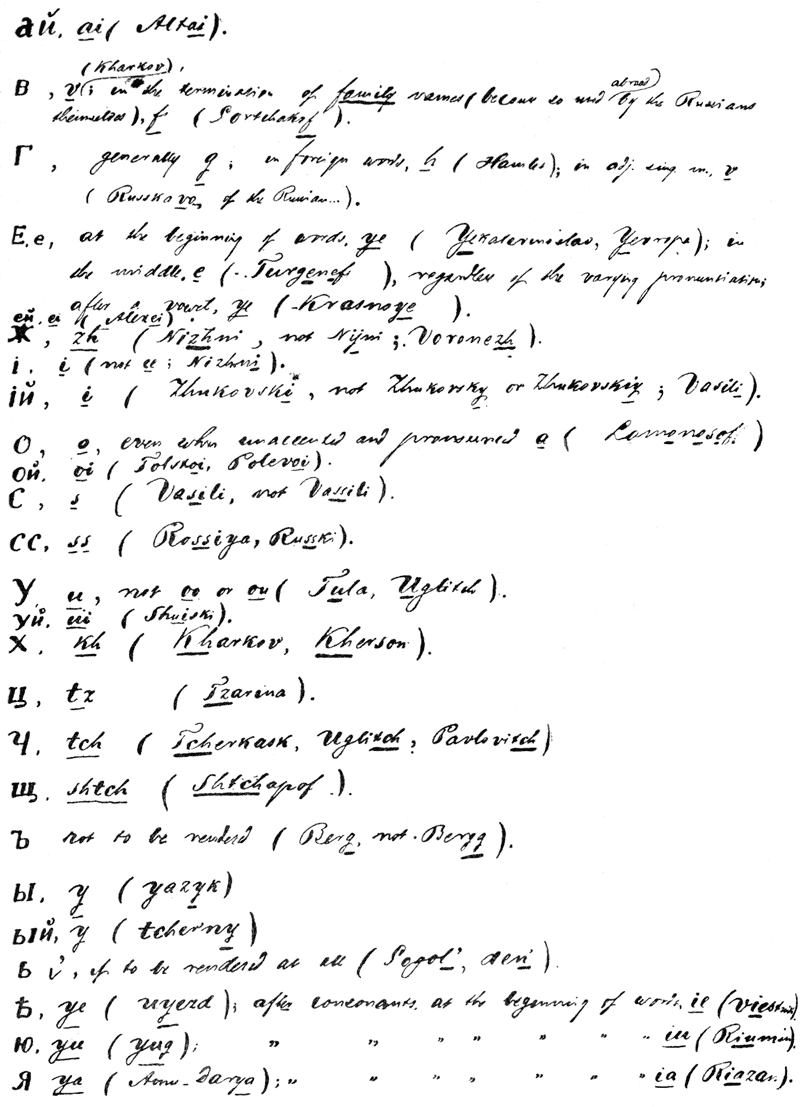 ай, ai (Altai).
(Kharkov),
В, v; in the termination of family names (become so used by abroad the Russians
themselves), f (Gortchakof).
Г, generally g; in foreign words, h (Hamlet); in adj. sing. m., v
(Russkava, of the Russian...).
Е, е, at the beginning of words, ye (Yekaterinoslav, Yevropa); in
the middle, e (Turgenef), regardless of the varying pronunciation;
after a vowel, ye (Krasnoye).
ей, ei (Alexei).
Ж, zh (Nizhni, not Nijni; Voronezh).
і. i (not ee; Nizhni).
ій, i (Zhukovski, not Zhukovsky or Zhukovskiy; Vasili).
О, o, even when unaccented and pronounced a (Lomonosof)
ой. oi (Tolstoi, Polevoi).
С, s (Vasili, not Vassili).
сс, ss (Rossiya, Russki).
У u, not oo or ou (Tula, Uglitch).
уй. ui (Shuiski).
Х. kh (Kharkov, Kherson).
Ц, tz (Tzarina).
Ч, tch (Tcherkask, Uglitch, Pavlovitch)
Щ. shtch (Shtchapof).
Ъ not to be rendered (Berg, not Bergg).
Ы, y (yazyk)
ый, y (tcherny)
Ь ĭ, if to be rendered at all (Gogol', den').
Ѣ, ye (uyezd); after consonants, at the beginning of words, ie (viestnik)
Ю. yu (yug); " " " " " " " iu (Riumin).
Я ya (Amu-Darya); " " " " " " " ia (Riazan).